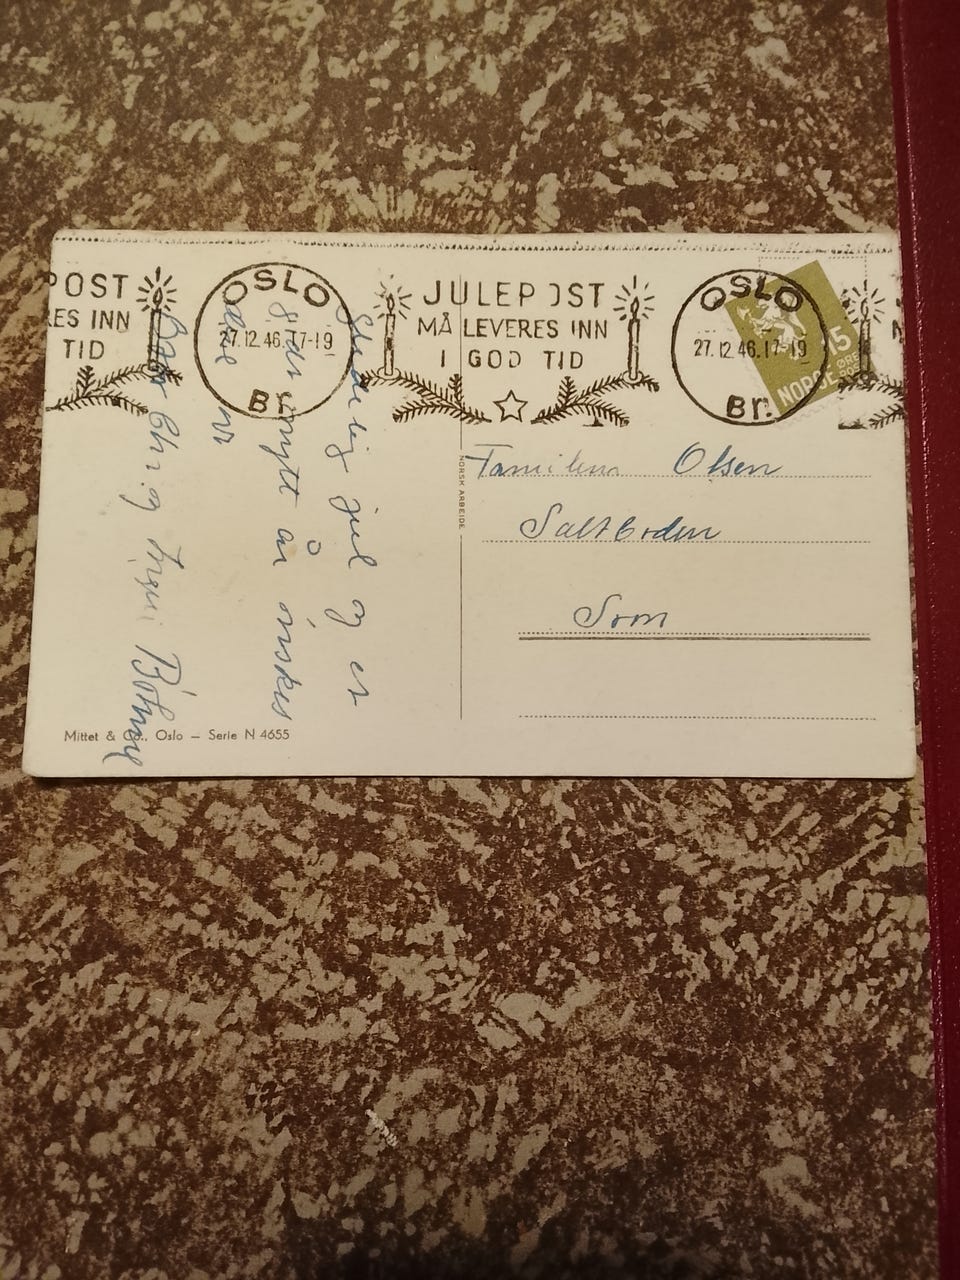 POST
ES INN
TID
OSLO
27.12.46.17-19
Br.
JULEPOST
MÅ LEVERES INN
I GOD TID
OSLO
27.12.46.17-19
Br.
15
ØRE
NORGE
Familien Olsen
Saltboden
Son
NORSK ARBEIDE
Gledelig jul og et
godt nytt år ønskes
dere av
Chr. og
Mittet & Co., Oslo – Serie N 4655